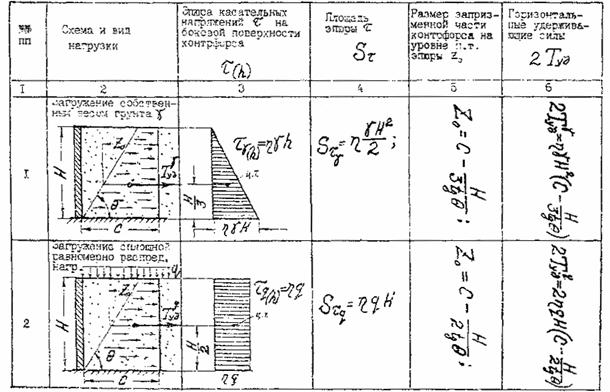 №№ пп
Схема и вид нагрузки
Эпюра касательных напряжений τ на боковой поверхности контрфорса τ(h)
Площадь эпюры τ Sτ
Размер заприз-
менной части
контрфорса на
уровне ц.т.
эпюры Z₀
Горизонталь-
ные удержива-
ющие силы
2Tуд
1 2 3 4 5 6
1
Загружение собствен-
ным весом грунта γ
H
Z₀
Tуд^γ
θ
C
ц.т.
H/3
ηγH
τγ(h)=ηγh
Sτγ=η γH²/2;
Z₀=C-H/3tgθ;
2Tуд^γ=ηγH²(C-H/3tgθ)
2
Загружение сплошной
равномерно распред.
нагр.
q
H
Z₀
Tуд^q
θ
C
ц.т.
H/2
ηq
τq(h)=ηq
Sτq=ηqH
Z₀=C-H/2tgθ;
2Tуд^q=2ηqH(C-H/2tgθ)